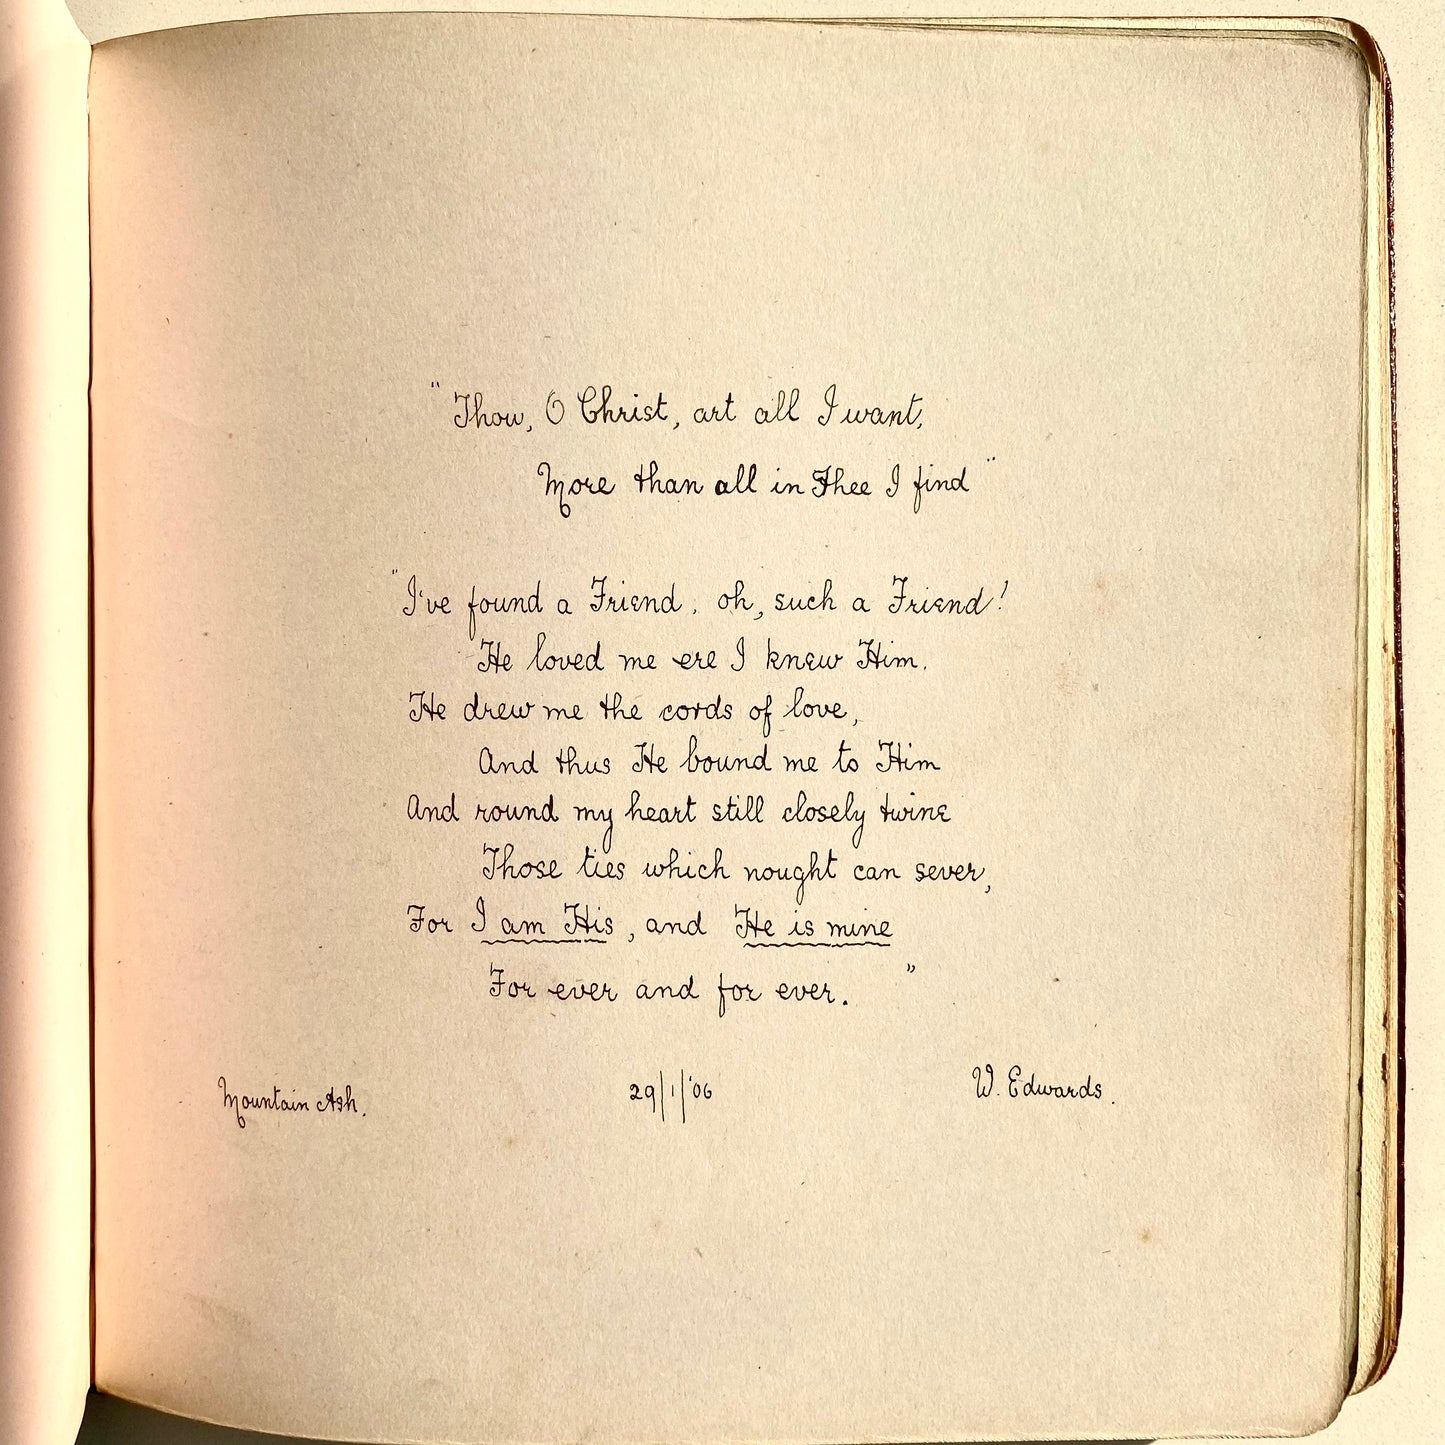 " Thou, O Christ, art all I want,
More than all in Thee I find "
"I've found a Friend, oh, such a Friend!
He loved me ere I knew Him.
He drew me the cords of love,
And thus He bound me to Him
And round my heart still closely twine
Those ties which nought can sever,
For I am His, and He is mine
For ever and for ever. "
Mountain Ash. 29/1/'06 W. Edwards.